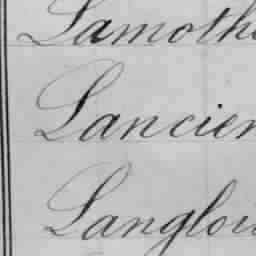 Lamothe
Lancien
Langlois